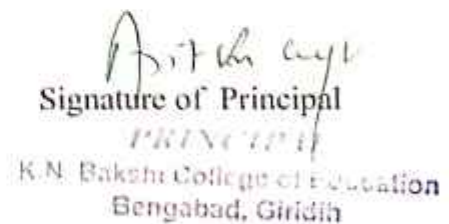 Signature of Principal
PRINCIPAL
K.N. Bakshi College of Education
Bengabad, Giridih